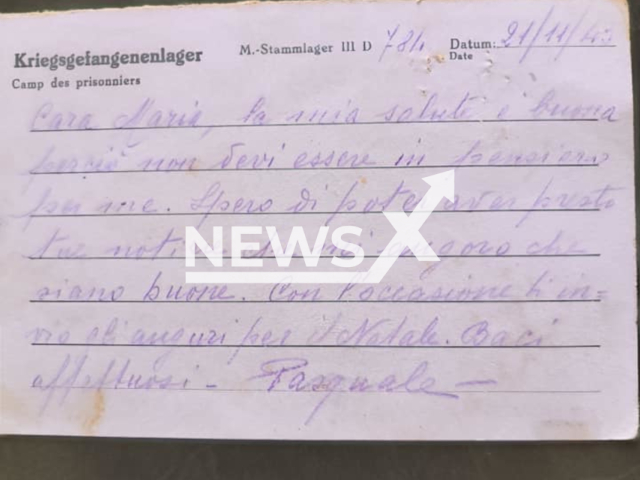 Kriegsgefangenenlager M.-Stammlager III D 784 Datum: 21/11/43
Camp des prisonniers Date
Cara Maria, la mia salute è buona
perciò non devi essere in pensiero
per me. Spero di poter aver presto
tue notizie mi auguro che
siano buone. Con l'occasione ti in=
vio gli auguri per il Natale. Baci
affettuosi - Pasquale -
NEWSX